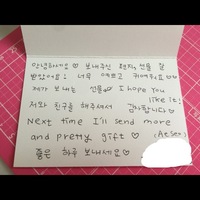 안녕하세요 ♡ 보내주신 편지, 선물 잘
받았어요! 너무 예쁘고 귀여워요 ♡
제가 보내는 선물 I hope you
like it!
저와 친구를 해주셔서 감사합니다 ♡
Next time I'll send more
and pretty gift ♡
좋은 하루 보내세요 ♡